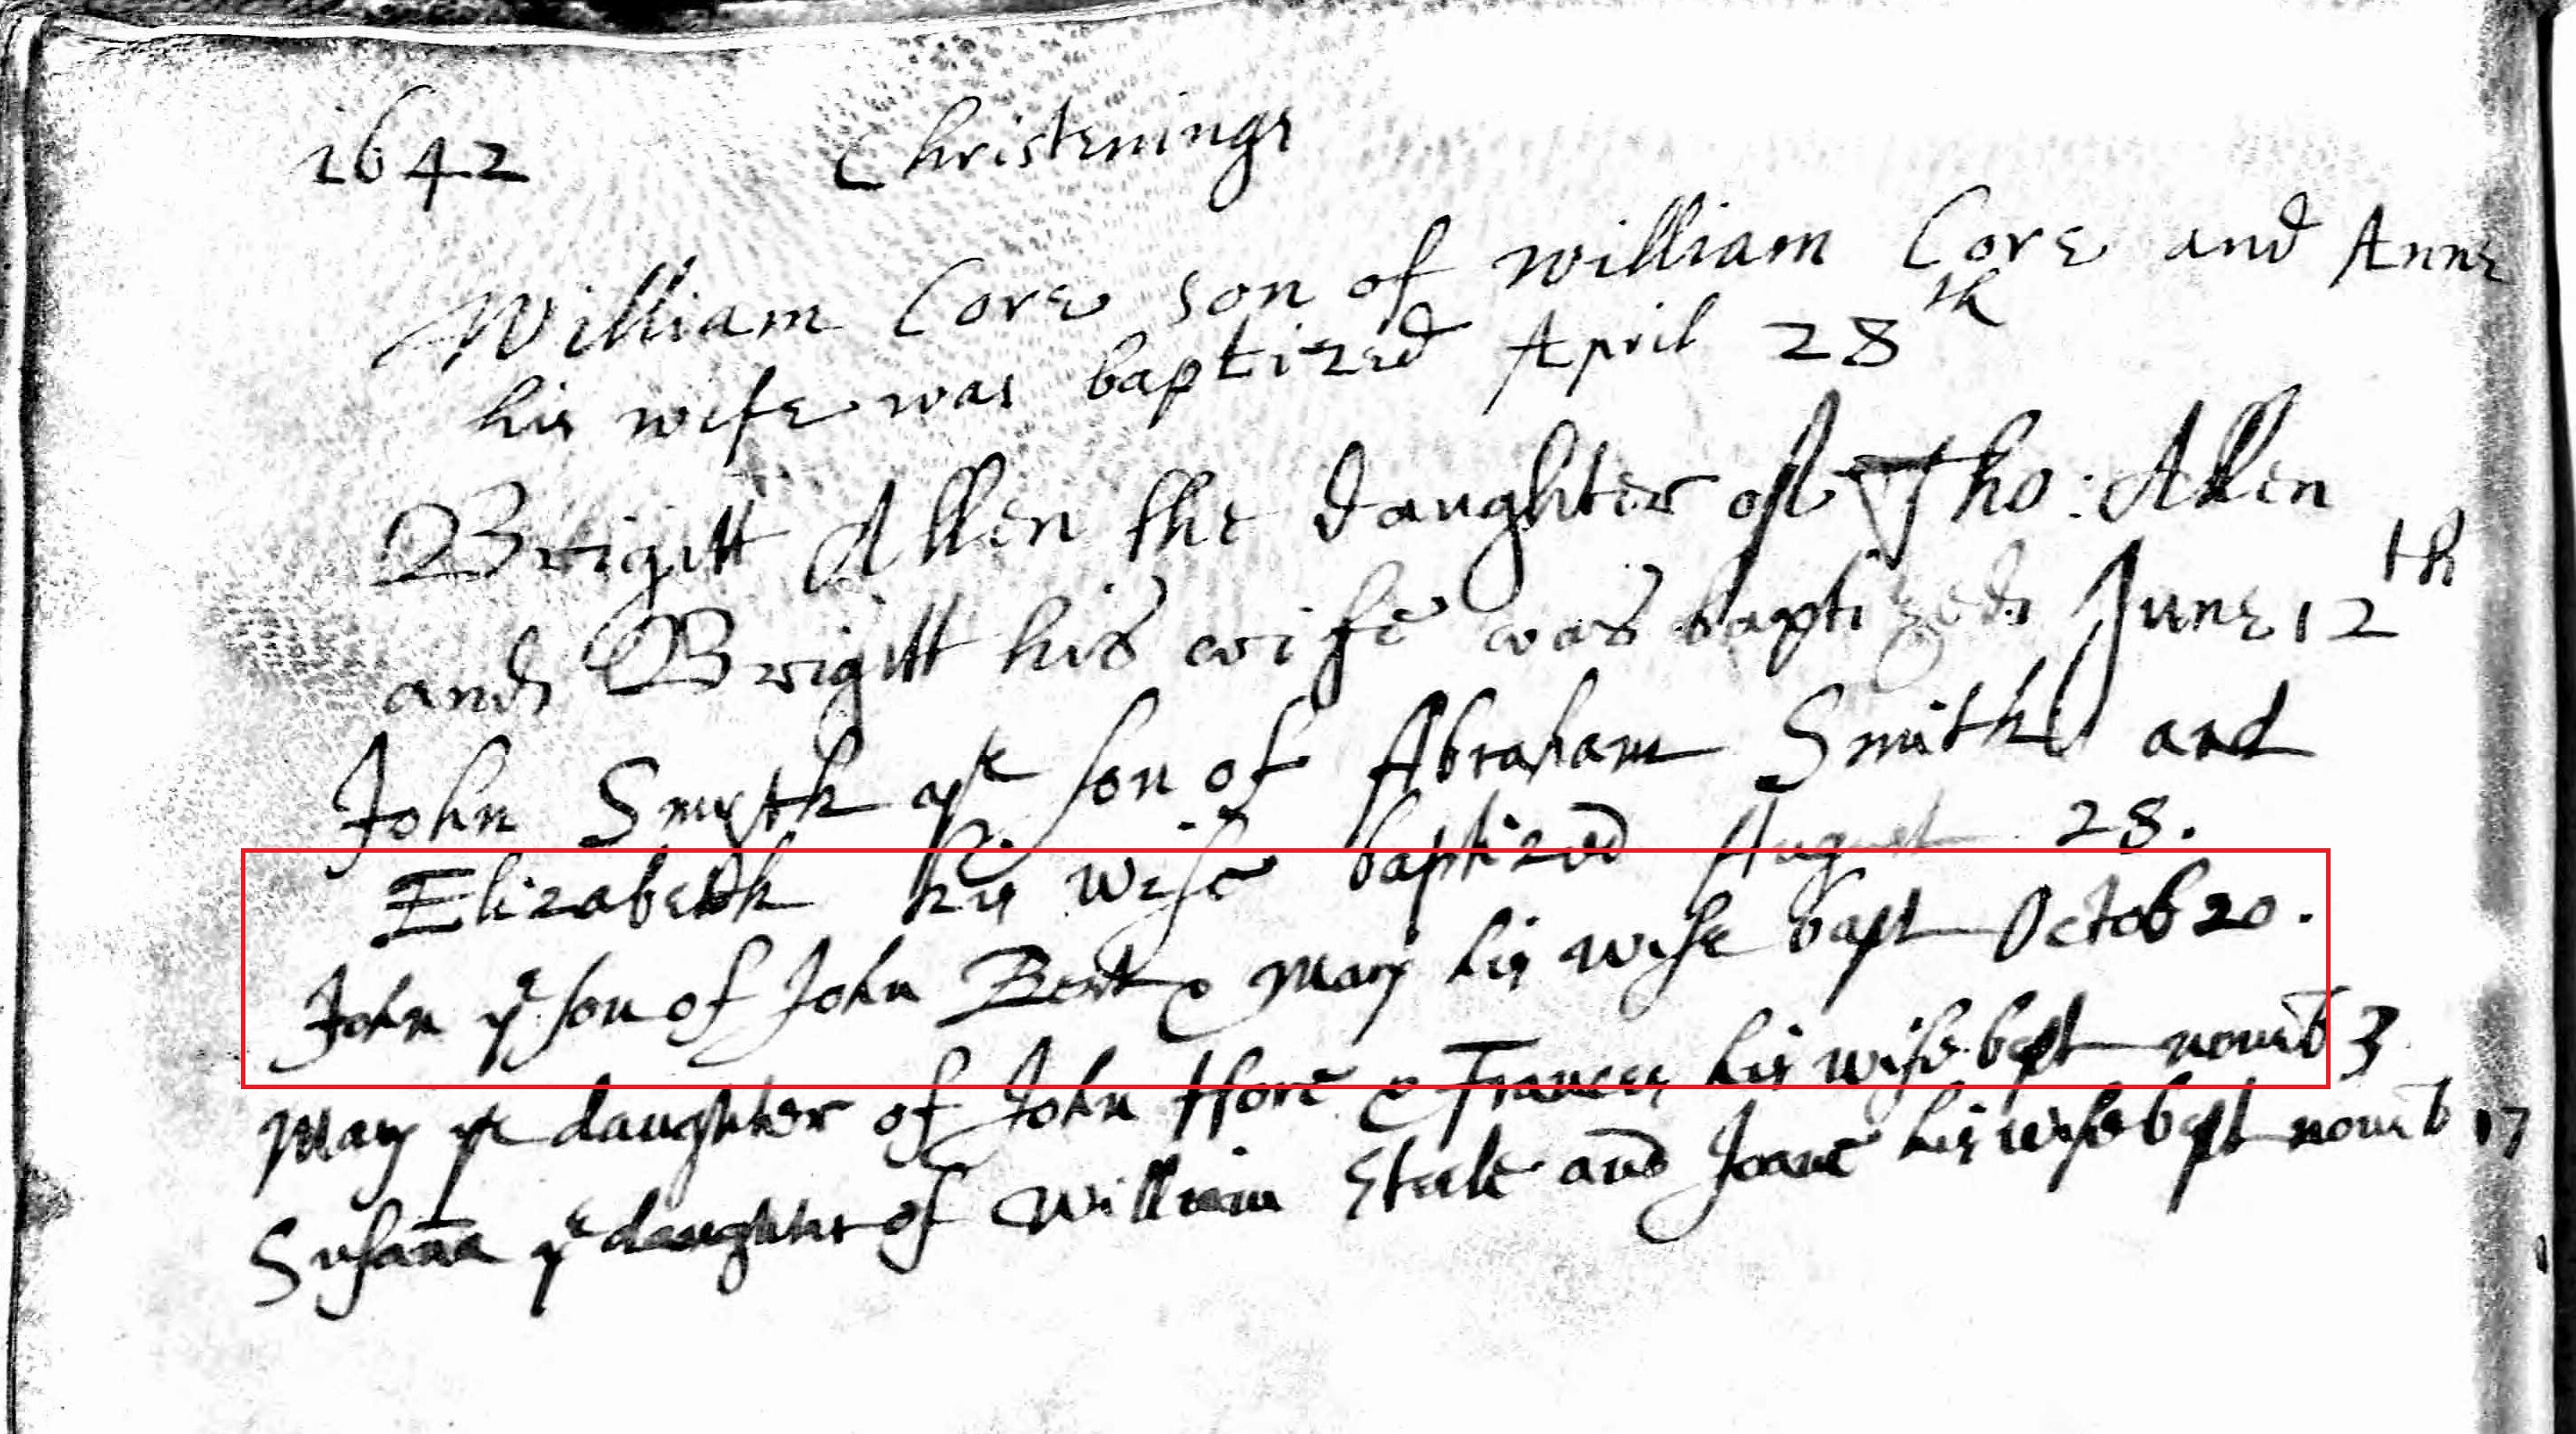 1642 Christenings
William Core son of William Core and Anne
his wife was baptized April 28th
Brigitt Allen the daughter of Tho: Allen
and Brigitt his wife was baptized June 12th
John Smyth ye son of Abraham Smith and
Elizabeth his wife baptized August 28.
John ye son of John Best & Mary his wife bapt Octob 20.
Mary ye daughter of John Hore & Frances his wife bapt novēb 3
Susāna ye daughter of William Steele and Joane his wife bapt novēb 17